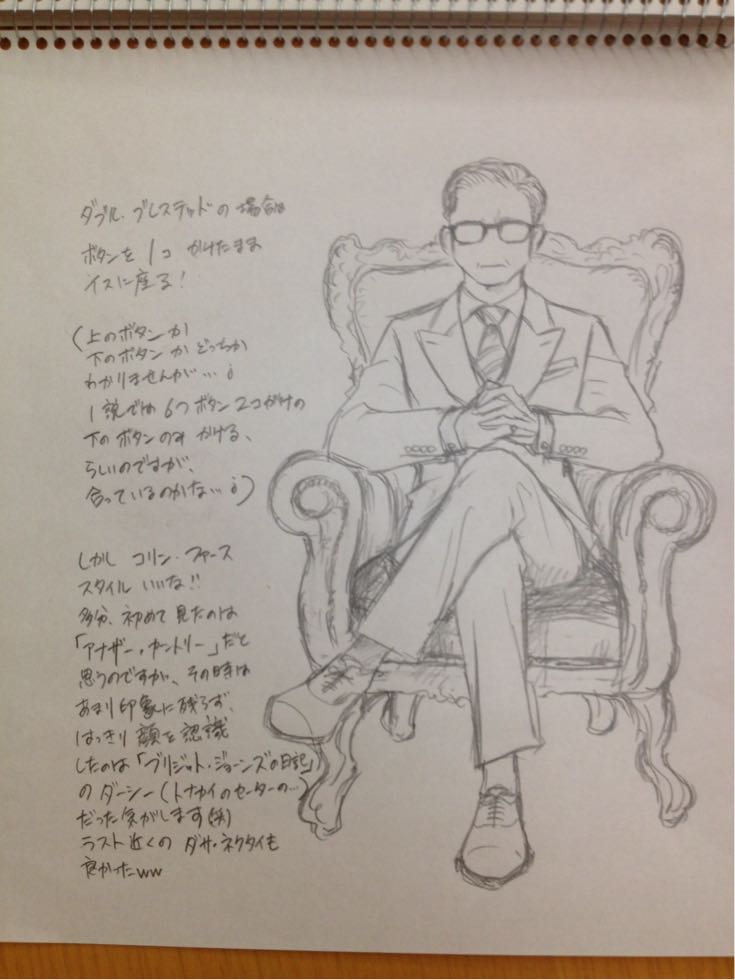 ダブル・ブレステッドの場合は
ボタンを1コ かけたまま
イスに座る!
(上のボタンか
下のボタンか どっちか
わかりませんが…;
1説では6つボタン2コがけの
下のボタンのみ かける、
らしいのですが、
合っているのかな…;)
しかし コリン・ファース
スタイル いいな!!
多分、初めて見たのは
「アナザー・カントリー」だと
思うのですが、その時は
あまり印象に残らず、
はっきり顔を認識
したのは「ブリジット・ジョーンズの日記」
の ダーシー(トナカイのセーターの…)
だった気がします(笑)
ラスト近くの ダサ・ネクタイも
良かったww